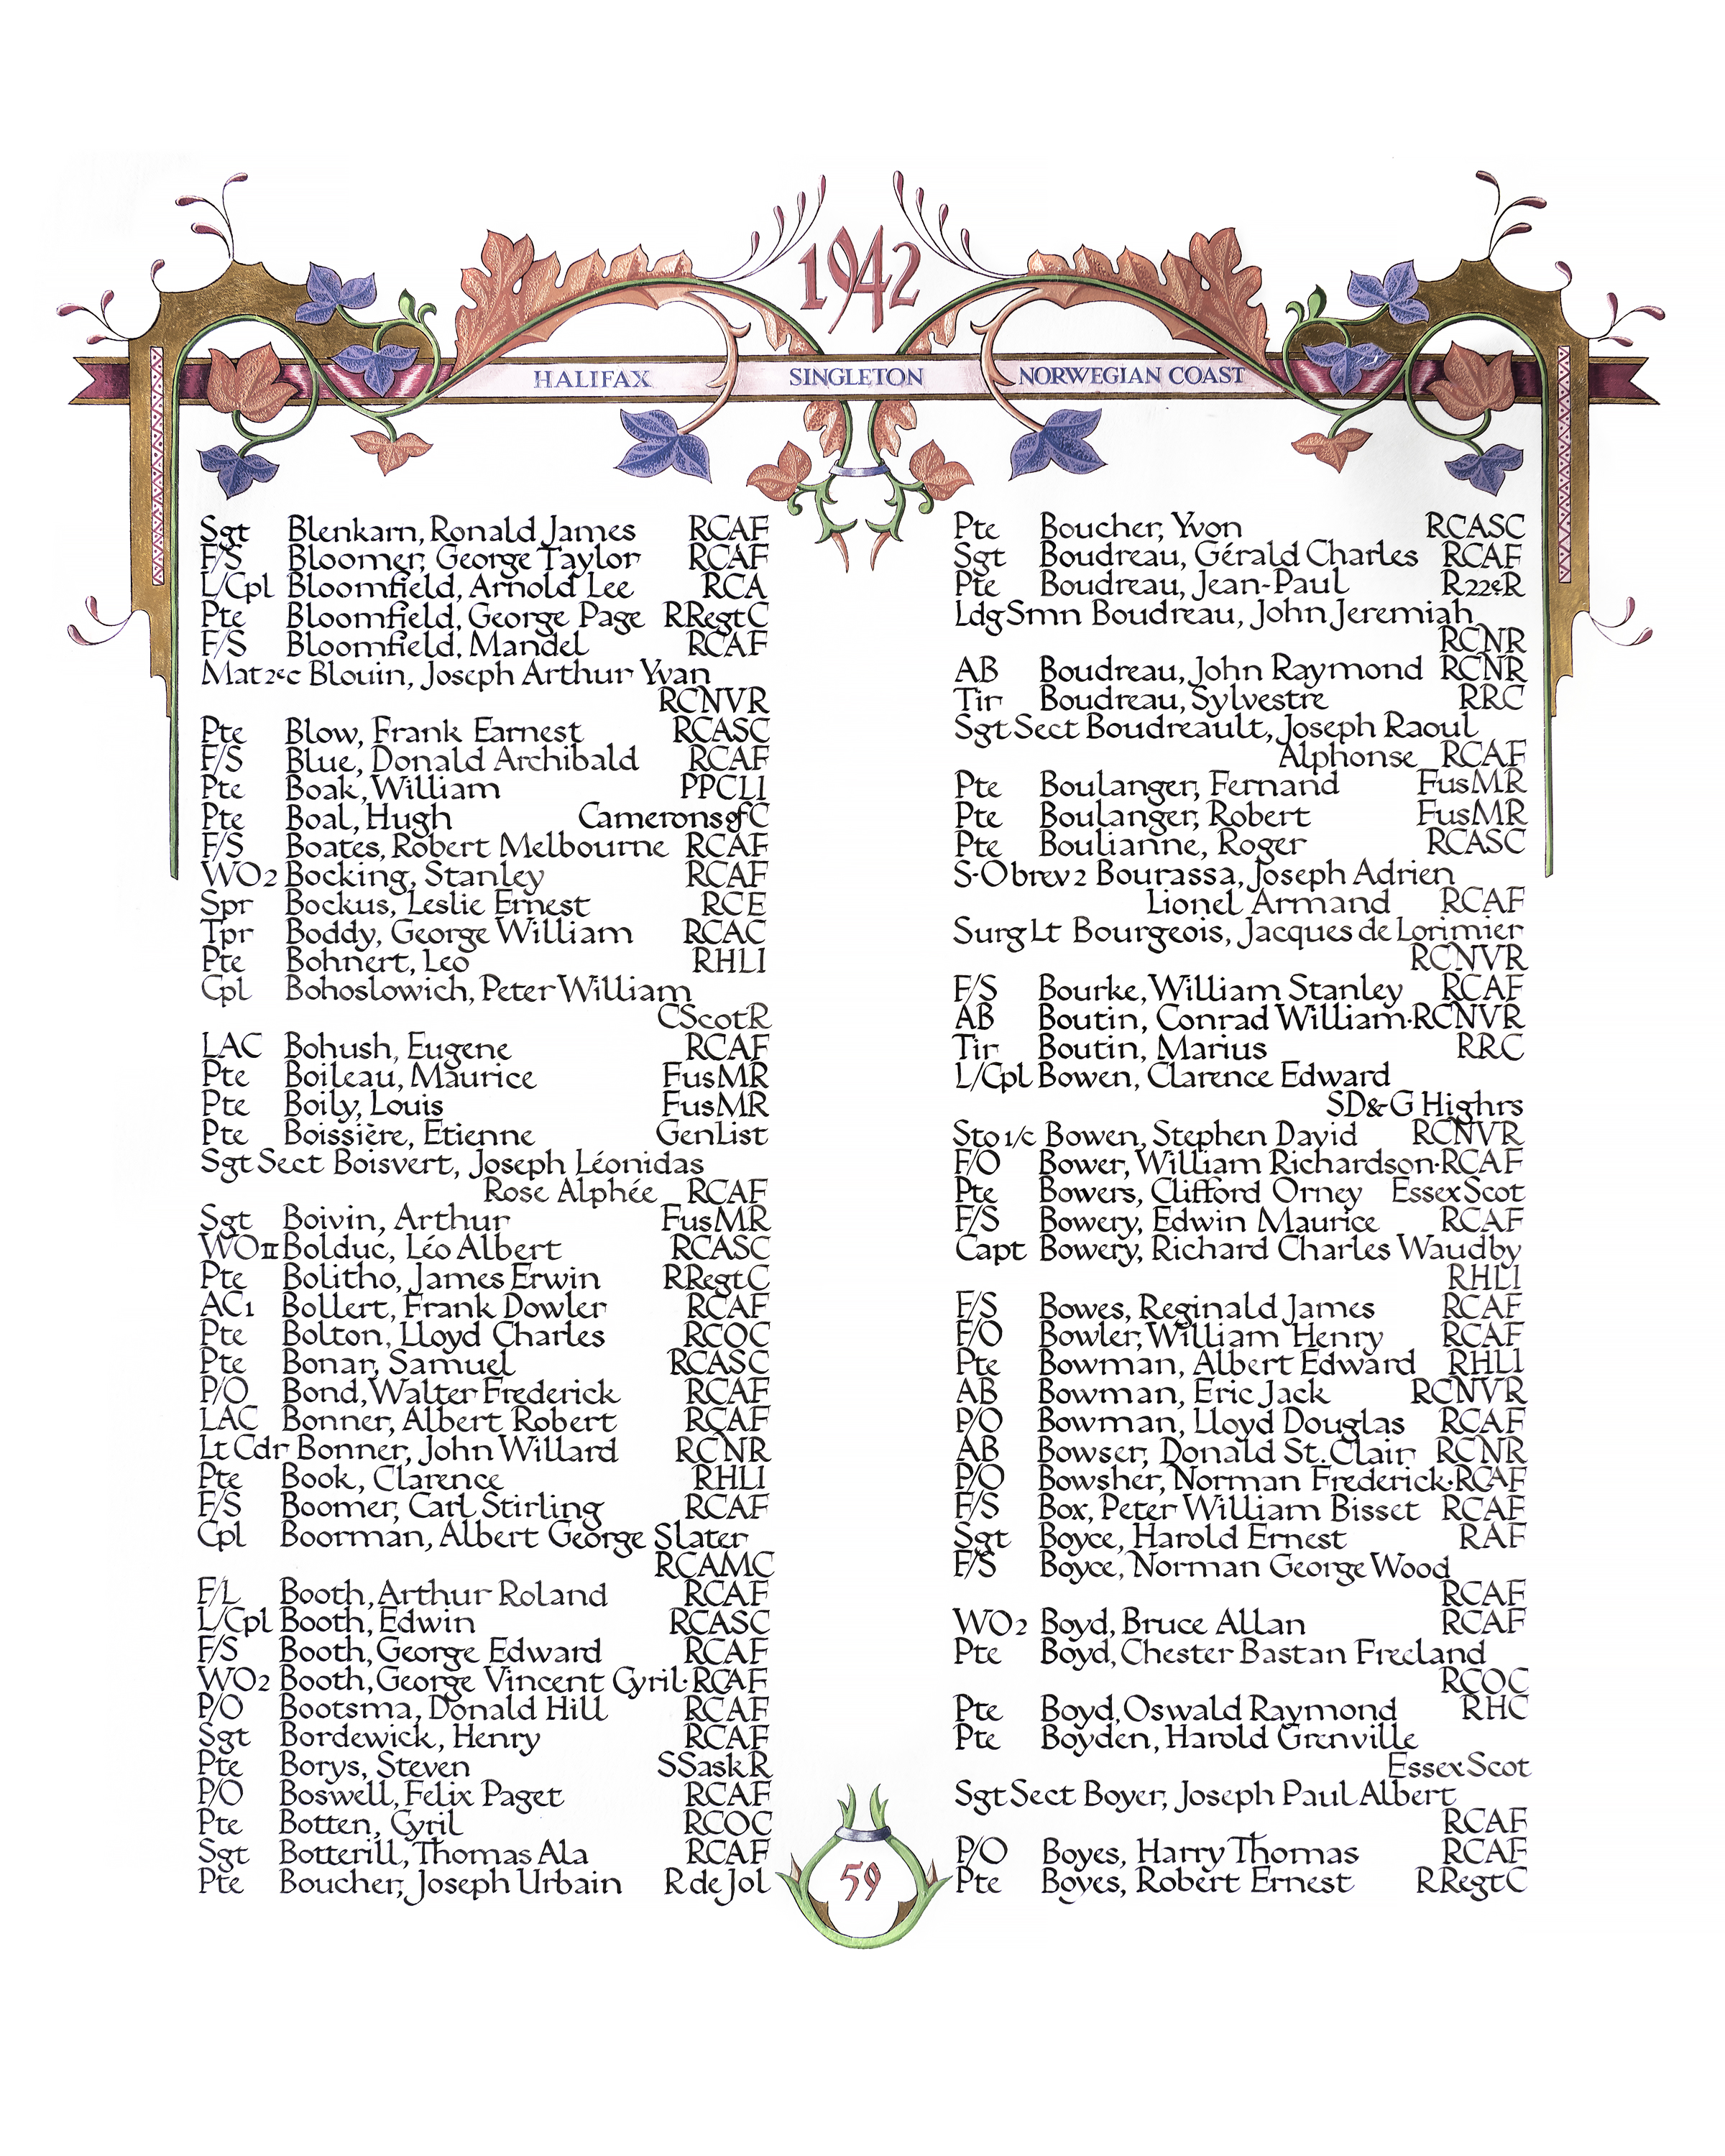 1942
HALIFAX SINGLETON NORWEGIAN COAST
Sgt Blenkarn, Ronald James RCAF
F/S Bloomer, George Taylor RCAF
L/Cpl Bloomfield, Arnold Lee RCA
Pte Bloomfield, George Page RRegtC
F/S Bloomfield, Mandel RCAF
Mat2ec Blouin, Joseph Arthur Yvan
RCNVR
Pte Blow, Frank Earnest RCASC
F/S Blue, Donald Archibald RCAF
Pte Boak, William PPCLI
Pte Boal, Hugh Camerons of C
F/S Boates, Robert Melbourne RCAF
WO2 Bocking, Stanley RCAF
Spr Bockus, Leslie Ernest RCE
Tpr Boddy, George William RCAC
Pte Bohnert, Leo RHLI
Cpl Bohoslowich, Peter William
CScotR
LAC Bohush, Eugene RCAF
Pte Boileau, Maurice FusMR
Pte Boily, Louis FusMR
Pte Boissière, Etienne GenList
Sgt Sect Boisvert, Joseph Léonidas
Rose Alphée RCAF
Sgt Boivin, Arthur FusMR
WOII Bolduc, Léo Albert RCASC
Pte Bolitho, James Erwin RRegtC
AC1 Bollert, Frank Dowler RCAF
Pte Bolton, Lloyd Charles RCOC
Pte Bonar, Samuel RCASC
P/O Bond, Walter Frederick RCAF
LAC Bonner, Albert Robert RCAF
Lt Cdr Bonner, John Willard RCNR
Pte Book, Clarence RHLI
F/S Boomer, Carl Stirling RCAF
Cpl Boorman, Albert George Slater
RCAMC
F/L Booth, Arthur Roland RCAF
L/Cpl Booth, Edwin RCASC
F/S Booth, George Edward RCAF
WO2 Booth, George Vincent Cyril·RCAF
P/O Bootsma, Donald Hill RCAF
Sgt Bordewick, Henry RCAF
Pte Borys, Steven SSaskR
P/O Boswell, Felix Paget RCAF
Pte Botten, Cyril RCOC
Sgt Botterill, Thomas Ala RCAF
Pte Boucher, Joseph Urbain R de Jol
Pte Boucher, Yvon RCASC
Sgt Boudreau, Gérald Charles RCAF
Pte Boudreau, Jean-Paul R22eR
Ldg Smn Boudreau, John Jeremiah
RCNR
AB Boudreau, John Raymond RCNR
Tir Boudreau, Sylvestre RRC
Sgt Sect Boudreault, Joseph Raoul
Alphonse RCAF
Pte Boulanger, Fernand FusMR
Pte Boulanger, Robert FusMR
Pte Boulianne, Roger RCASC
S-O brev 2 Bourassa, Joseph Adrien
Lionel Armand RCAF
Surg Lt Bourgeois, Jacques de Lorimier
RCNVR
F/S Bourke, William Stanley RCAF
AB Boutin, Conrad William·RCNVR
Tir Boutin, Marius RRC
L/Cpl Bowen, Clarence Edward
SD&G Highrs
Sto 1/c Bowen, Stephen David RCNVR
F/O Bower, William Richardson·RCAF
Pte Bowers, Clifford Orney EssexScot
F/S Bowery, Edwin Maurice RCAF
Capt Bowery, Richard Charles Waudby
RHLI
F/S Bowes, Reginald James RCAF
F/O Bowler, William Henry RCAF
Pte Bowman, Albert Edward RHLI
AB Bowman, Eric Jack RCNVR
P/O Bowman, Lloyd Douglas RCAF
AB Bowser, Donald St. Clair RCNR
P/O Bowsher, Norman Frederick·RCAF
F/S Box, Peter William Bisset RCAF
Sgt Boyce, Harold Ernest RAF
F/S Boyce, Norman George Wood
RCAF
WO2 Boyd, Bruce Allan RCAF
Pte Boyd, Chester Bastan Freeland
RCOC
Pte Boyd, Oswald Raymond RHC
Pte Boyden, Harold Grenville
EssexScot
Sgt Sect Boyer, Joseph Paul Albert
RCAF
P/O Boyes, Harry Thomas RCAF
Pte Boyes, Robert Ernest RRegtC
59